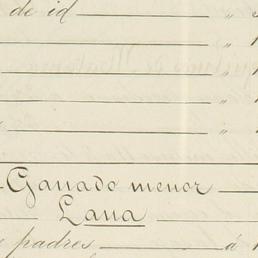 de id „
„
„
„
„
Ganado menor
Lana
padres á